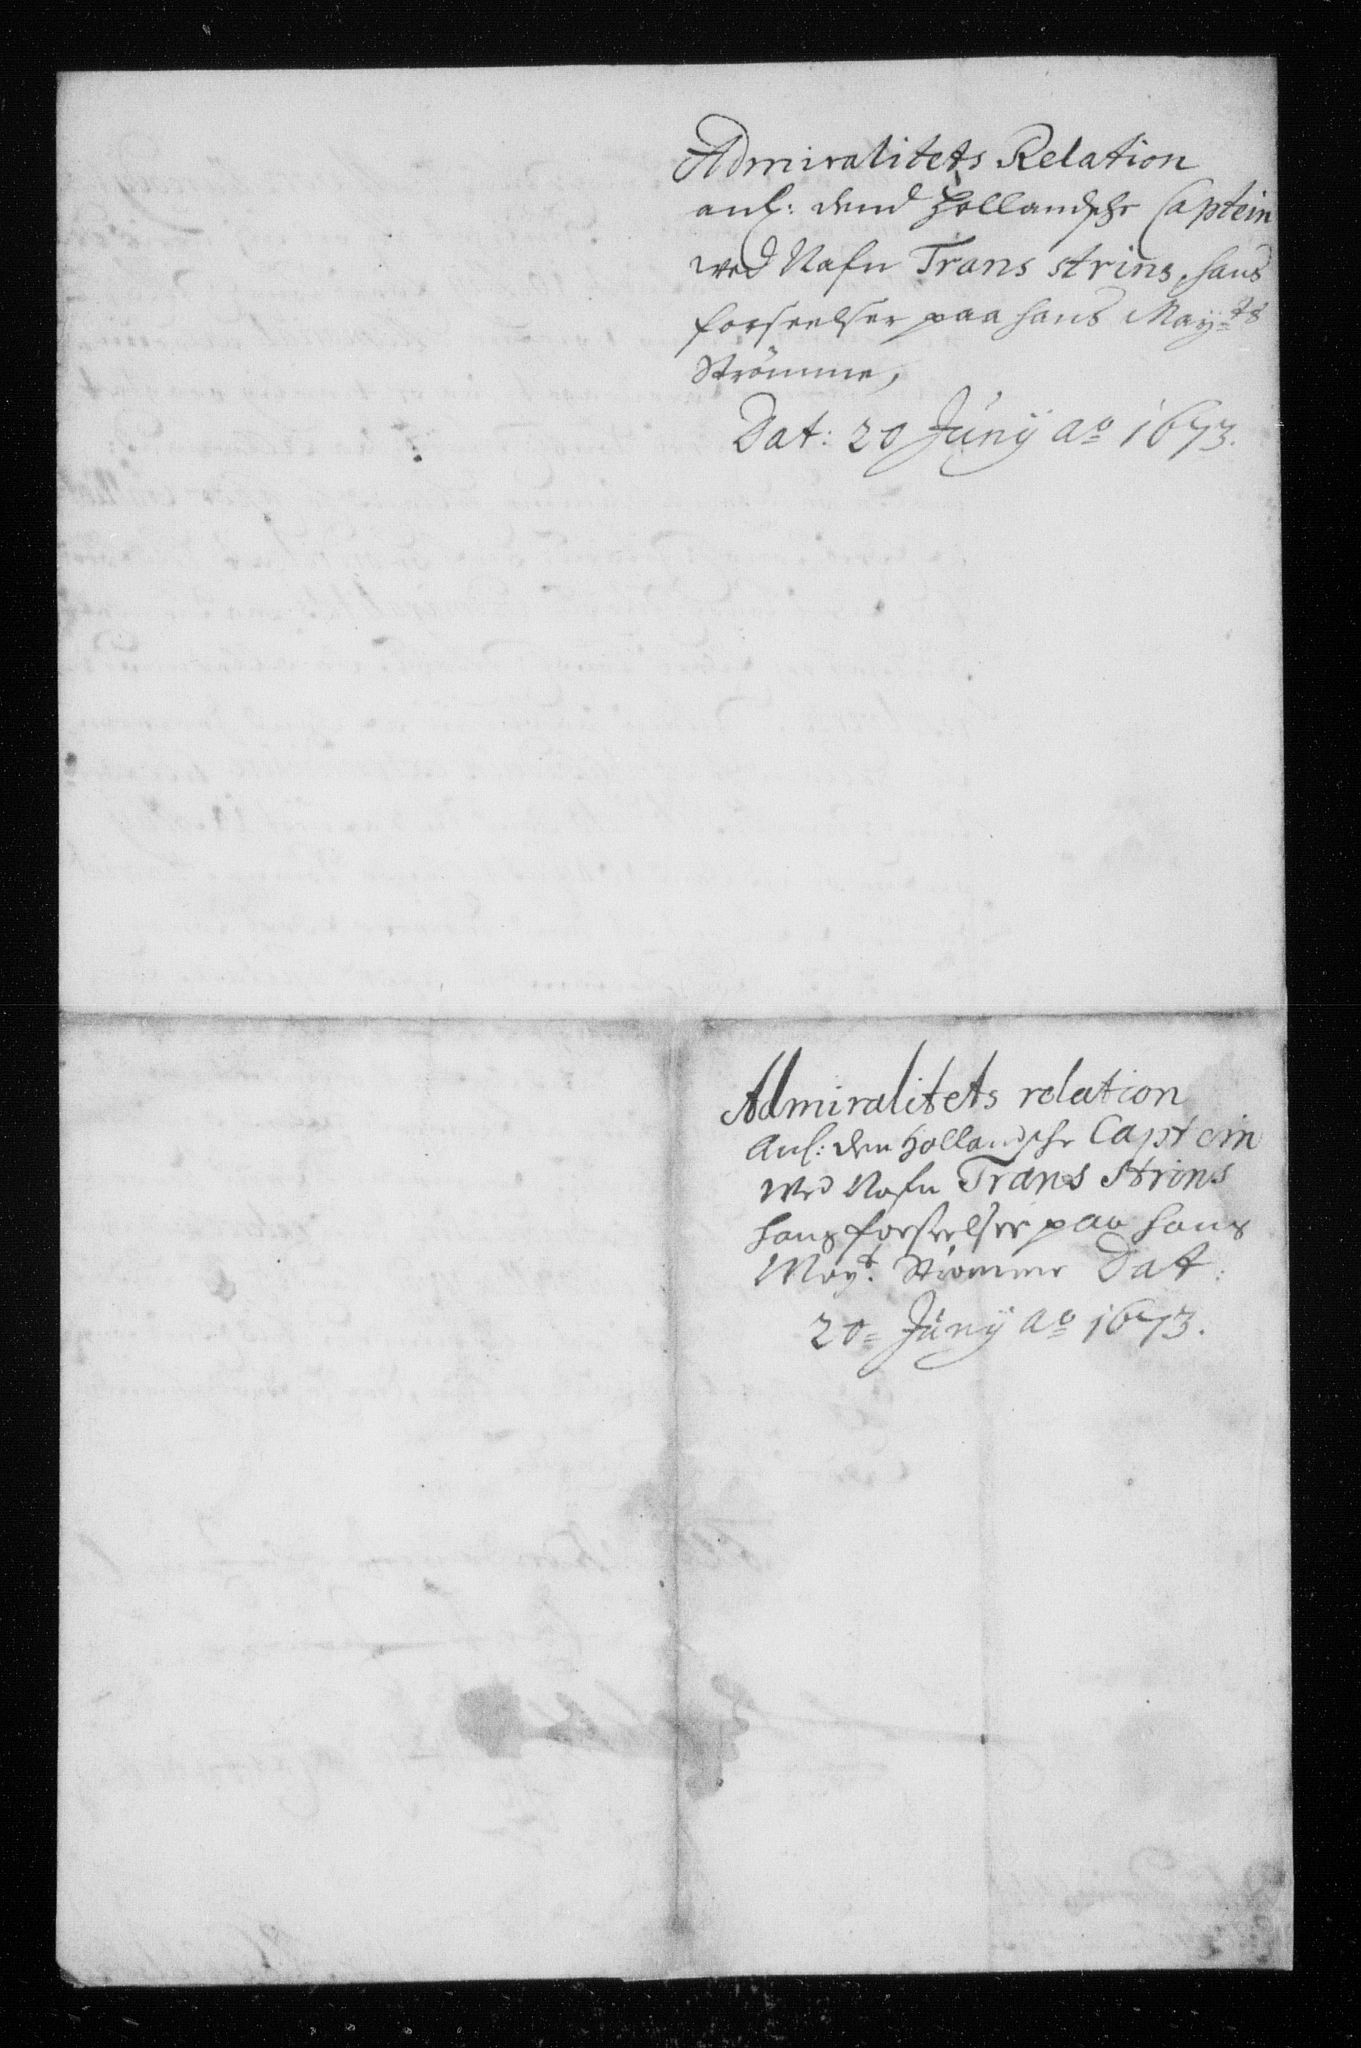 Admiralitets Relation
anl: dend Hollandsche Captein
ved Nafn Trans Strins, hans
forseelser paa hans May:ts
Strömme,
Dat: 20 Junÿ Ao 1673.
Admiralitets relation
Anl: den Hollandsche Captein
ved Nafn Trans Strins
hans forseelser paa hans
Mayt: Strömme Dat:
20= Junÿ Ao 1673.